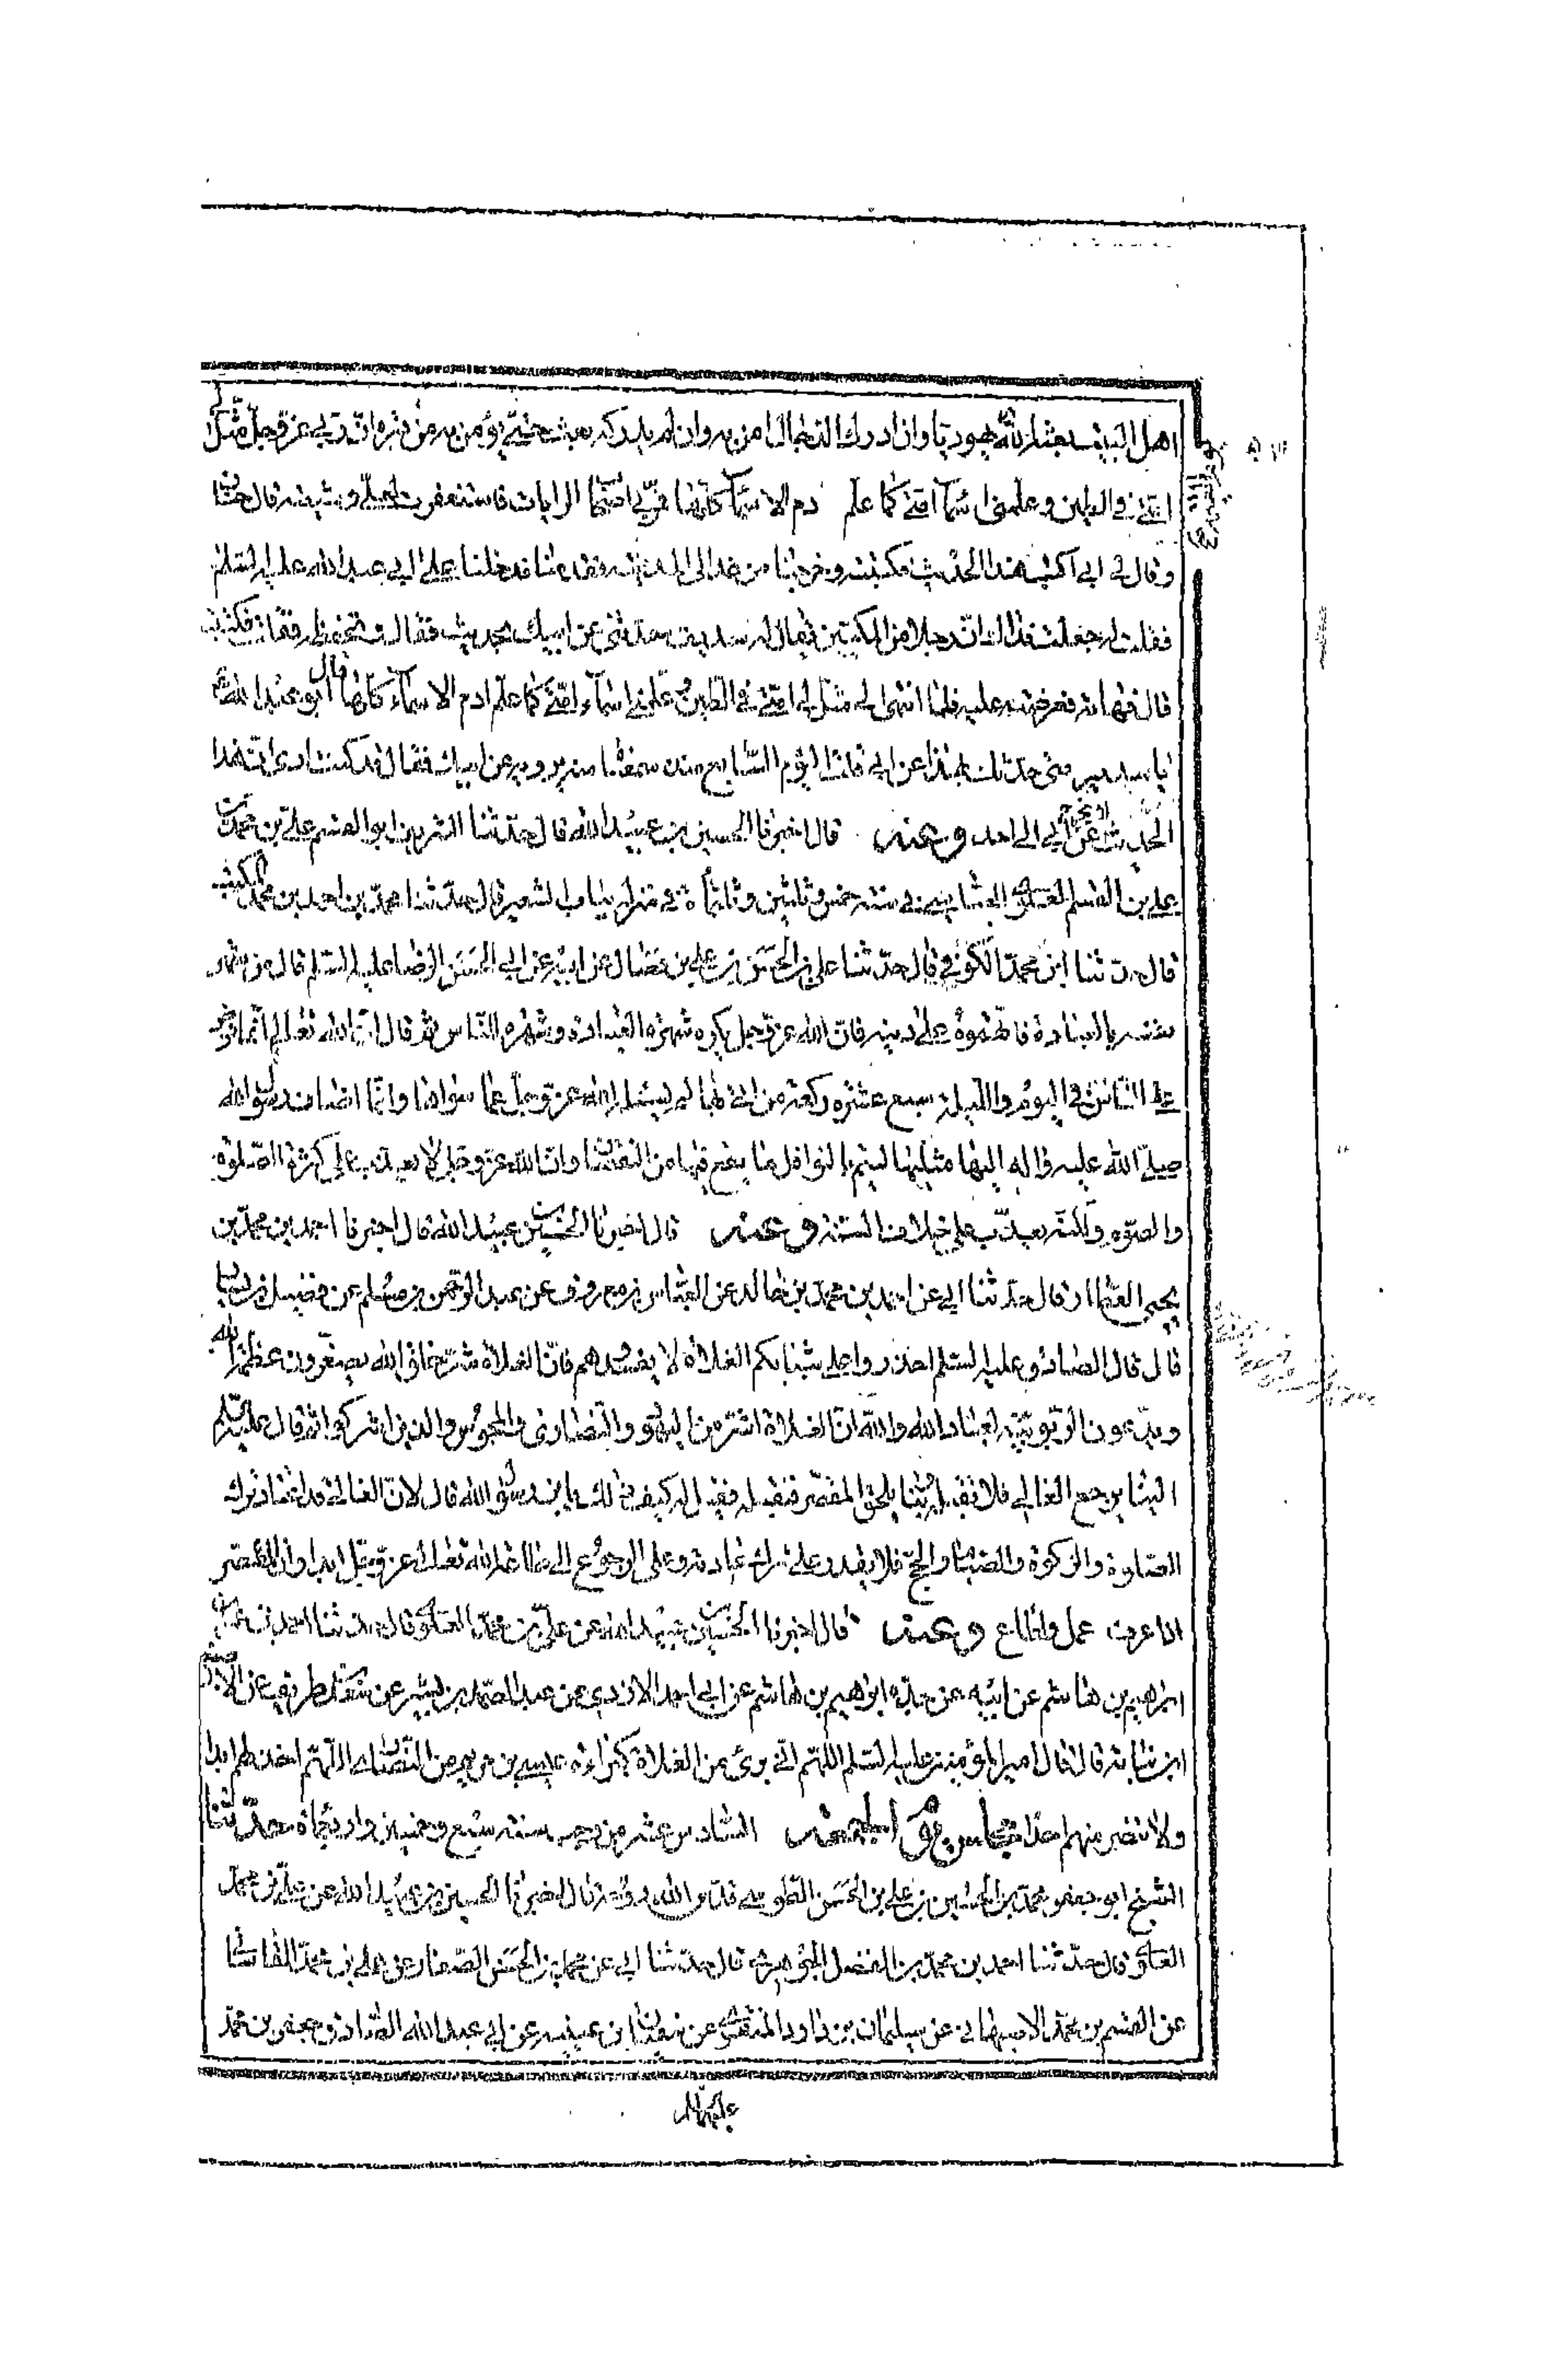 اهل البيت بعثه الله يهوديا وان ادرك الدجال امن به وان لم يدركه بعث حتى يؤمن به من قبره ان ربي عز وجل مثل لي
امتي في الطين وعلمني اسماء امتي كما علم ادم الاسماء كلها فمر بي اصحاب الرايات فاستغفرت لعلي وشيعته قال حنان
وقال لي ابي اكتب هذا الحديث فكتبته وخرجنا من غد الى المدينة فقدمنا فدخلنا على ابي عبد الله عليه السلام
فقلت له جعلت فداك ان رجلا من المكيين يقال له سديف حدثني عن ابيك بحديث فقال وتحفظه فقلت كتبته
قال فهاته فعرضته عليه فلما انتهى الى مثل لي امتي في الطين وعلمني اسماء امتي كما علم ادم الاسماء كلها قال ابو عبد الله
يا سدير متى حدثك بهذا عن ابي قلت اليوم السابع منذ سمعناه منه يرويه عن ابيك فقال قد كنت ارى ان هذا
الحديث لا يخرج عن ابي الى احد وعنه قال اخبرنا الحسين بن عبيد الله قال حدثنا الشريف ابو القسم علي بن محمد بن
علي بن القسم العلوي العباسي في سنة خمس وثلثين وثلثمائة في منزله بباب الشعير قال حدثنا محمد بن احمد بن محمد المكتب
قال حدثنا ابن محمد الكوفي قال حدثنا علي بن الحسن بن علي بن فضال عن ابيه عن ابي الحسن الرضا عليه السلم قال من شهر
نفسه بالعبادة فاتهموه على دينه فان الله عز وجل يكره شهرة العبادة وشهرة الناس ثم قال ان الله تعالى انما فرض
على الناس في اليوم والليلة سبع عشرة ركعة من اتى بها لم يسئله الله عز وجل عما سواها وانما اضاف رسول الله
صلى الله عليه واله اليها مثليها ليتم بالنوافل ما يقع فيها من النقصان وان الله عز وجل لا يعذب على كثرة الصلوة
والصوم ولكنه يعذب على خلاف السنة وعنه قال اخبرنا الحسين بن عبيد الله قال اخبرنا احمد بن محمد بن
يحيى العطار قال حدثنا ابي عن احمد بن محمد بن خالد عن العباس بن معروف عن عبد الرحمن بن مسلم عن فضيل بن يسار
قال قال الصادق عليه السلم احذروا على شبابكم الغلاة لا يفسدوهم فان الغلاة شر خلق الله يصغرون عظمة الله
ويدعون الربوبية لعباد الله والله ان الغلاة اشر من اليهود والنصارى والمجوس والذين اشركوا ثم قال عليه السلم
الينا يرجع الغالي فلا نقبله وبنا يلحق المقصر فنقبله فقيل له كيف ذلك يا بن رسول الله قال لان الغالي قد اعتاد ترك
الصلوة والزكوة والصيام والحج فلا يقدر على ترك عادته وعلى الرجوع الى طاعة الله عز وجل ابدا وان المقصر
اذا عرف عمل واطاع وعنه قال اخبرنا الحسين بن عبيد الله عن علي بن محمد العلوي قال حدثنا احمد بن علي بن
ابراهيم بن هاشم عن ابيه عن جده ابراهيم بن هاشم عن ابي احمد الازدي عن عبد الصمد بن بشير عن سعد بن طريف عن الاصبغ
ابن نباته قال قال امير المؤمنين عليه السلم اللهم اني برئ من الغلاة كبراءة عيسى بن مريم من النصارى اللهم اخذلهم ابدا
ولا تنصر منهم احدا مجلس يوم الجمعة السادس عشر من رجب سنة سبع وخمسين واربعمائة حدثنا
الشيخ ابو جعفر محمد بن الحسن بن علي بن الحسن الطوسي قدس الله روحه قال اخبرنا الحسين بن عبيد الله عن علي بن محمد
العلوي قال حدثنا احمد بن محمد بن الفضل الجوهري قال حدثنا ابي عن محمد بن الحسن الصفار عن علي بن محمد القاساني
عن القسم بن محمد الاصبهاني عن سليمان بن داود المنقري عن سفيان ابن عيينه عن ابي عبد الله الصادق جعفر بن محمد
عليهما السلم